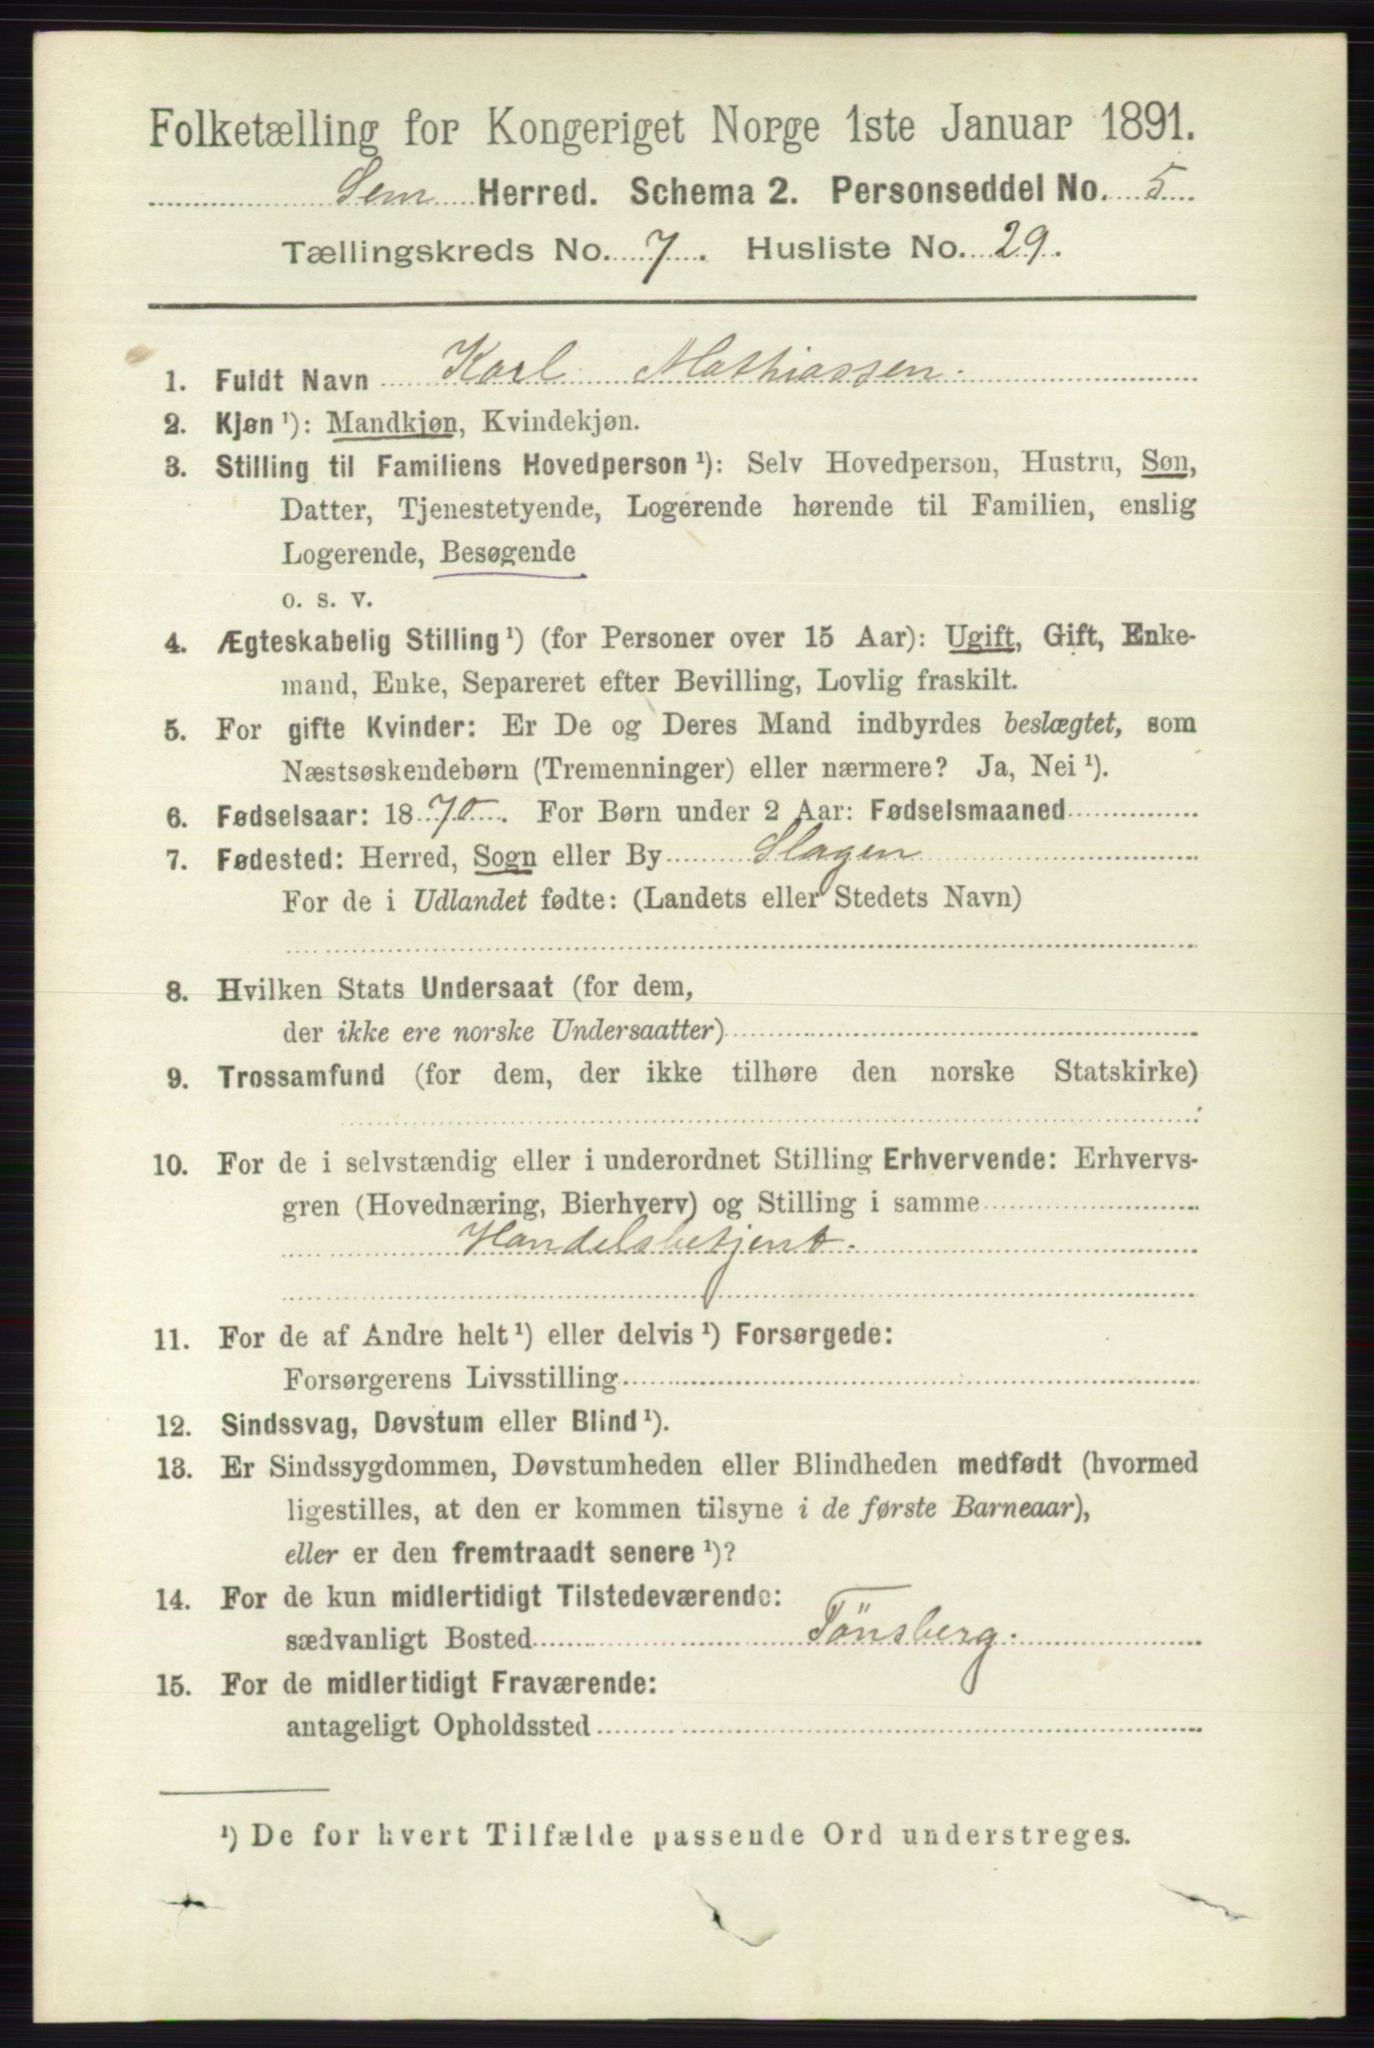 Folketælling for Kongeriget Norge 1ste Januar 1891.
Sem Herred. Schema 2. Personseddel No. 5
Tællingskreds No. 7. Husliste No. 29.
1. Fuldt Navn Karl Mathiassen.
2. Kjøn ¹): Mandkjøn, Kvindekjøn.
3. Stilling til Familiens Hovedperson ¹): Selv Hovedperson, Hustru, Søn,
Datter, Tjenestetyende, Logerende hørende til Familien, enslig
Logerende, Besøgende
o. s. v.
4. Ægteskabelig Stilling ¹) (for Personer over 15 Aar): Ugift, Gift, Enke-
mand, Enke, Separeret efter Bevilling, Lovlig fraskilt.
5. For gifte Kvinder: Er De og Deres Mand indbyrdes beslægtet, som
Næstsøskendebørn (Tremenninger) eller nærmere? Ja, Nei ¹).
6. Fødselsaar: 1870. For Børn under 2 Aar: Fødselsmaaned
7. Fødested: Herred, Sogn eller By Slagen
For de i Udlandet fødte: (Landets eller Stedets Navn)
8. Hvilken Stats Undersaat (for dem,
der ikke ere norske Undersaatter)
9. Trossamfund (for dem, der ikke tilhøre den norske Statskirke)
10. For de i selvstændig eller i underordnet Stilling Erhvervende: Erhvervs-
gren (Hovednæring, Bierhverv) og Stilling i samme
Handelsbetjent.
11. For de af Andre helt ¹) eller delvis ¹) Forsørgede:
Forsørgerens Livsstilling
12. Sindssvag, Døvstum eller Blind ¹).
13. Er Sindssygdommen, Døvstumheden eller Blindheden medfødt (hvormed
ligestilles, at den er kommen tilsyne i de første Barneaar),
eller er den fremtraadt senere ¹)?
14. For de kun midlertidigt Tilstedeværende:
sædvanligt Bosted Tönsberg.
15. For de midlertidigt Fraværende:
antageligt Opholdssted
¹) De for hvert Tilfælde passende Ord understreges.